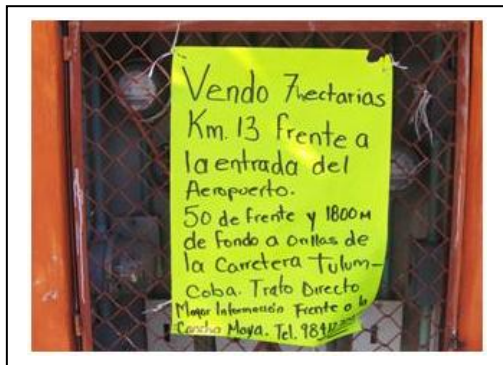 Vendo 7hectarias
Km. 13 frente a
la entrada del
Aeropuerto.
50 de frente y 1800M
de fondo a orillas de
la Carretera Tulum-
Coba. Trato Directo
Mayor Información Frente a la
Cancha Maya. Tel. 984